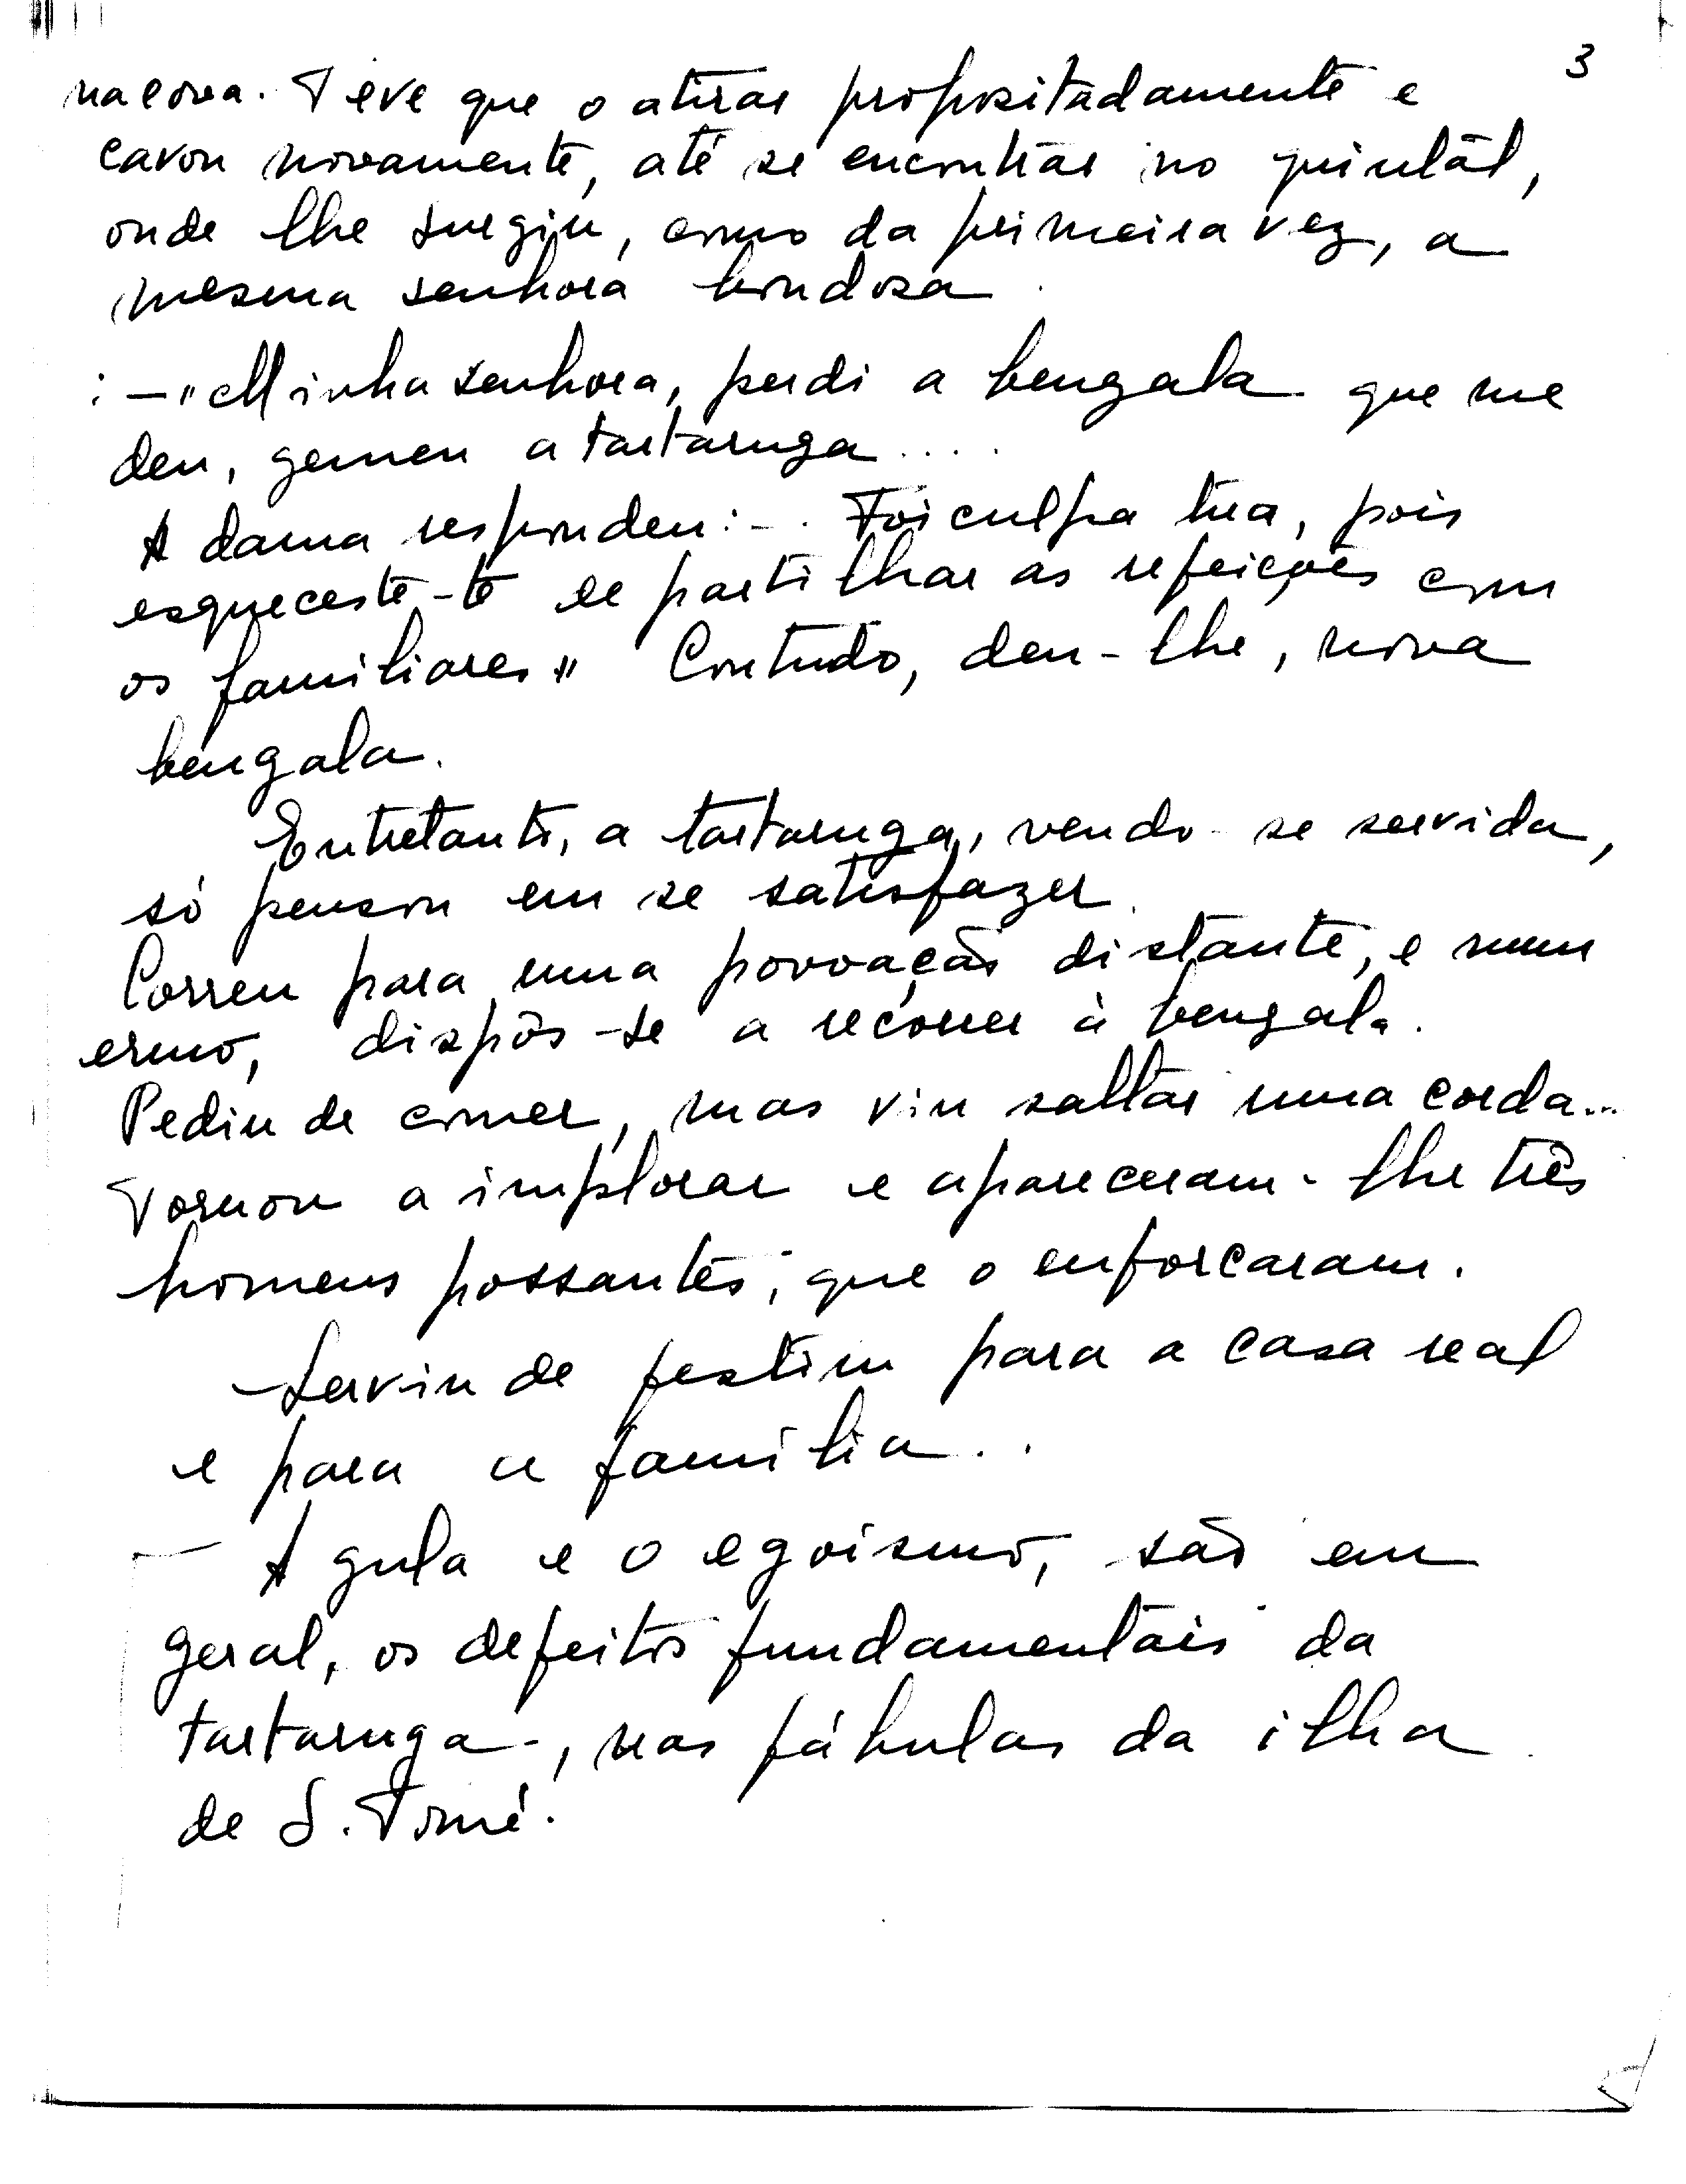 3
na cova. Teve que o atirar propositadamente e
cavou novamente, até se encontrar no quintal,
onde lhe surgiu, como da primeira vez, a
mesma senhora bondosa.
: — "Minha senhora, perdi a bengala que me
deu, gemeu a tartaruga ....
A dama respondeu: - . Foi culpa tua, pois
esqueceste-te de partilhar as refeições com
os familiares" Contudo, deu-lhe, nova
bengala.
Entretanto, a tartaruga, vendo-se servida,
só pensou em se satisfazer.
Correu para uma povoação distante, e num
ermo, dispôs-se a recorrer à bengala.
Pediu de comer, mas viu saltar uma corda...
Tornou a implorar e apareceram-lhe três
homens possantes, que o enforcaram.
Serviu de festim para a casa real
e para a família...
— A gula e o egoismo, são em
geral, os defeitos fundamentais da
tartaruga -, nas fábulas da ilha
de S. Tomé.